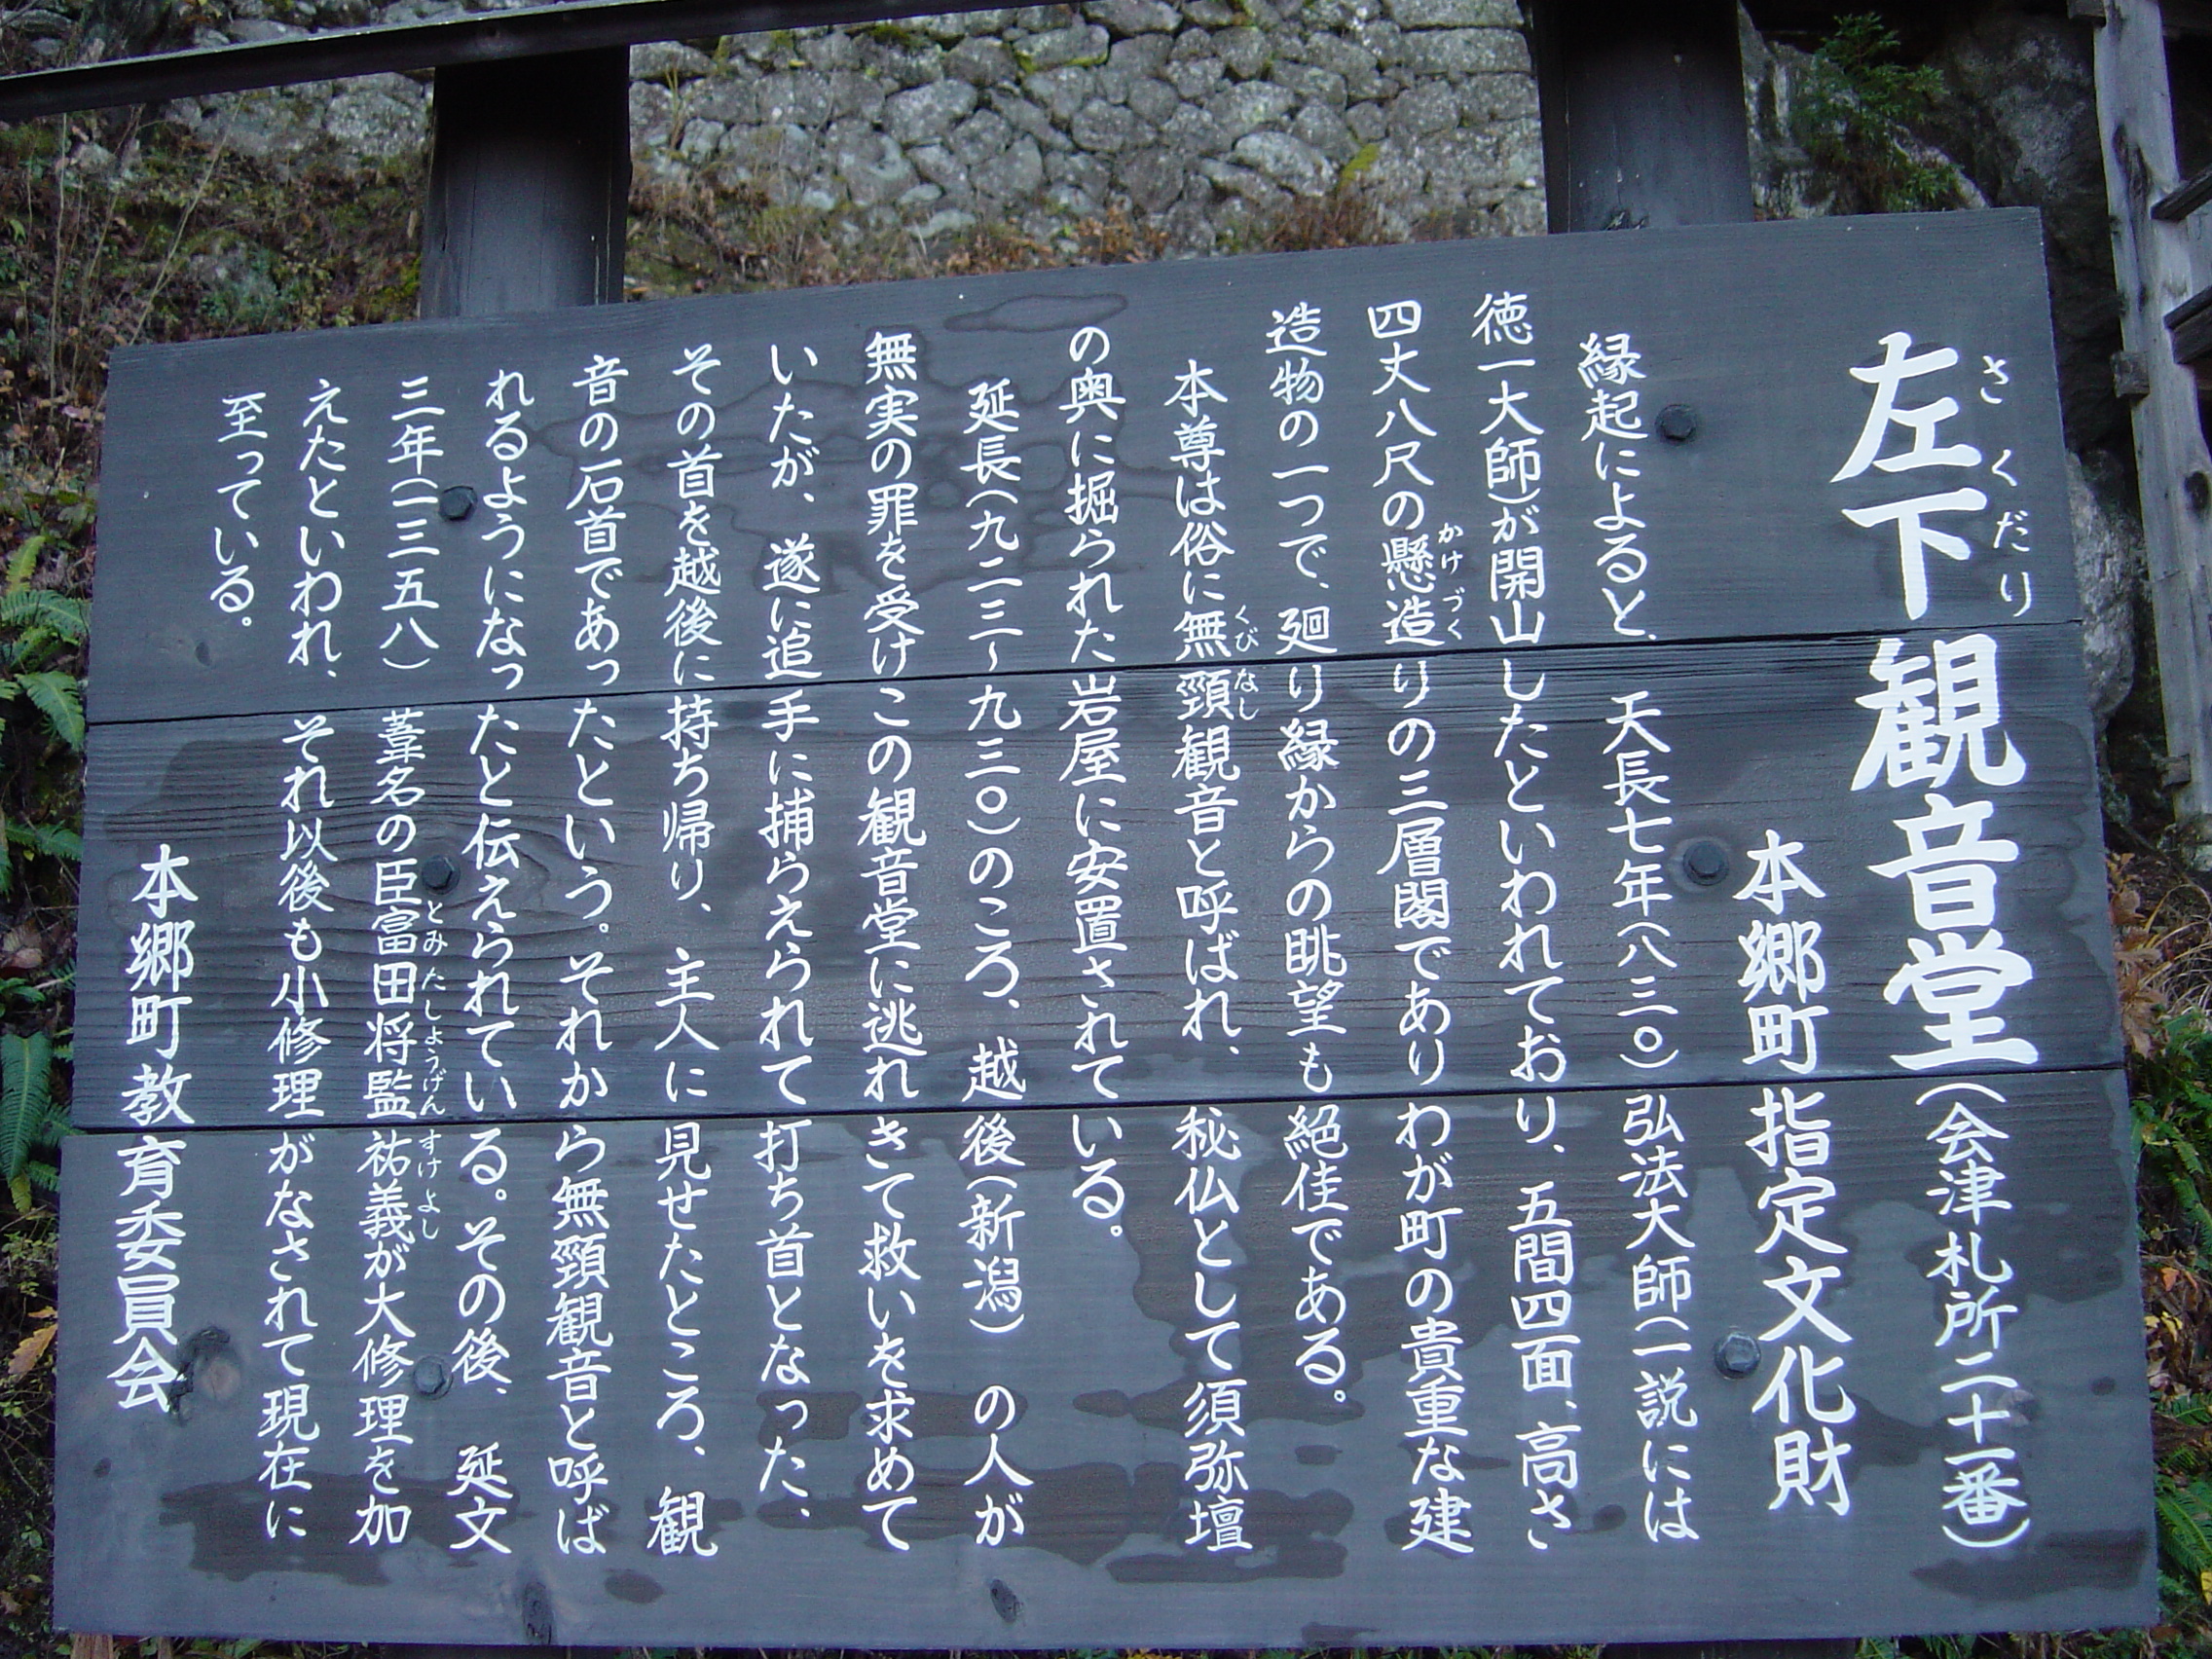 左下観音堂(会津札所二十一番)
さくだり
本郷町指定文化財
縁起によると、天長七年(八三〇)弘法大師(一説には
徳一大師)が開山したといわれており、五間四面、高さ
四丈八尺の懸造りの三層閣でありわが町の貴重な建
かけづく
造物の一つで、廻り縁からの眺望も絶佳である。
本尊は俗に無頸観音と呼ばれ、秘仏として須弥壇
くびなし
の奥に掘られた岩屋に安置されている。
延長(九二三~九三〇)のころ、越後(新潟)の人が
無実の罪を受けこの観音堂に逃れきて救いを求めて
いたが、遂に追手に捕らえられて打ち首となった、
その首を越後に持ち帰り、主人に見せたところ、観
音の石首であったという。それから無頸観音と呼ば
れるようになったと伝えられている。その後、延文
三年(一三五八)葦名の臣富田将監祐義が大修理を加
とみたしようげんすけよし
えたといわれ、それ以後も小修理がなされて現在に
至っている。
本郷町教育委員会